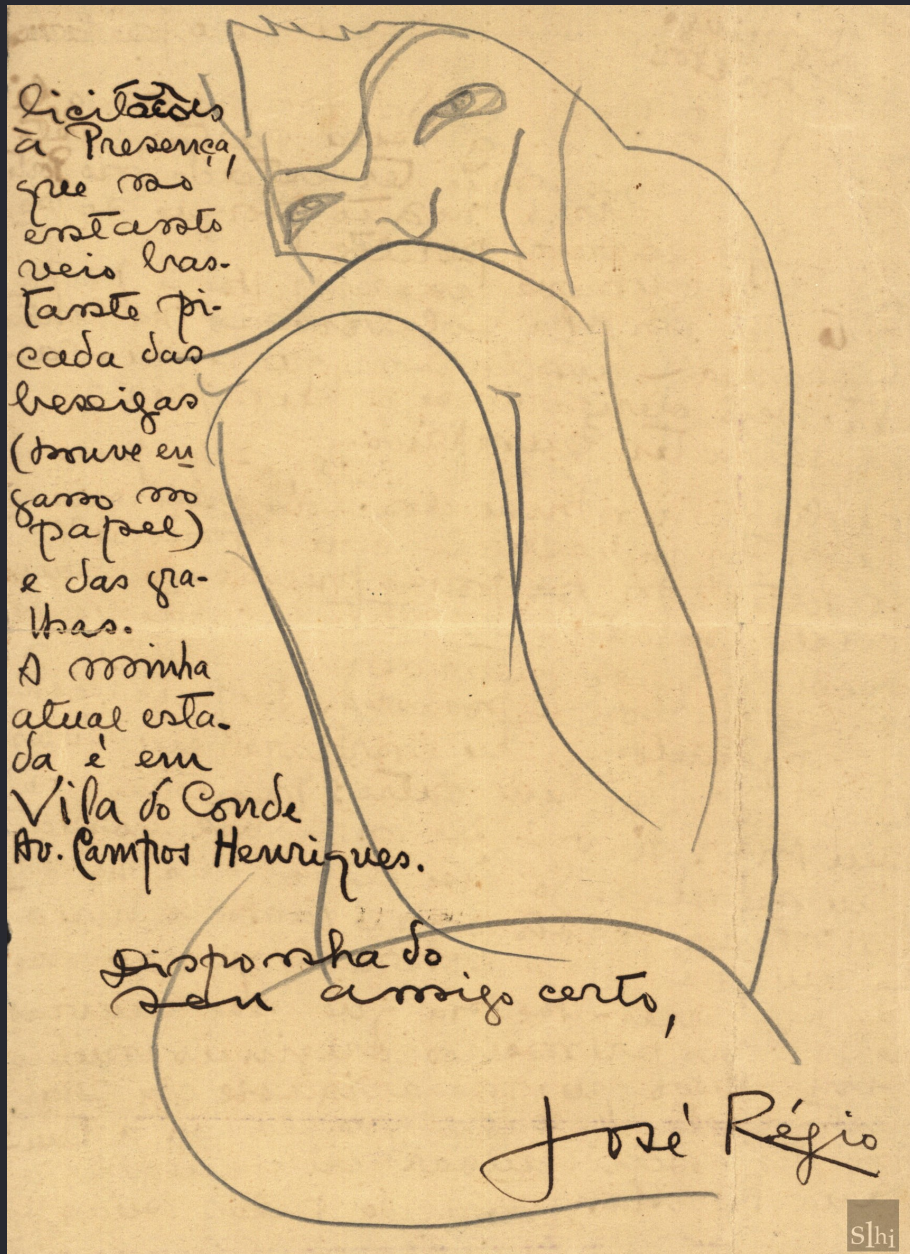 licitações
à Presença,
que no
entanto
veio bas-
tante pi-
cada das
bexigas
(houve en
gano no
papel)
e das gra-
lhas.
A minha
atual esta-
da é em
Vila do Conde
Av. Campos Henriques.
Disponha do
seu amigo certo,
José Régio
slhi